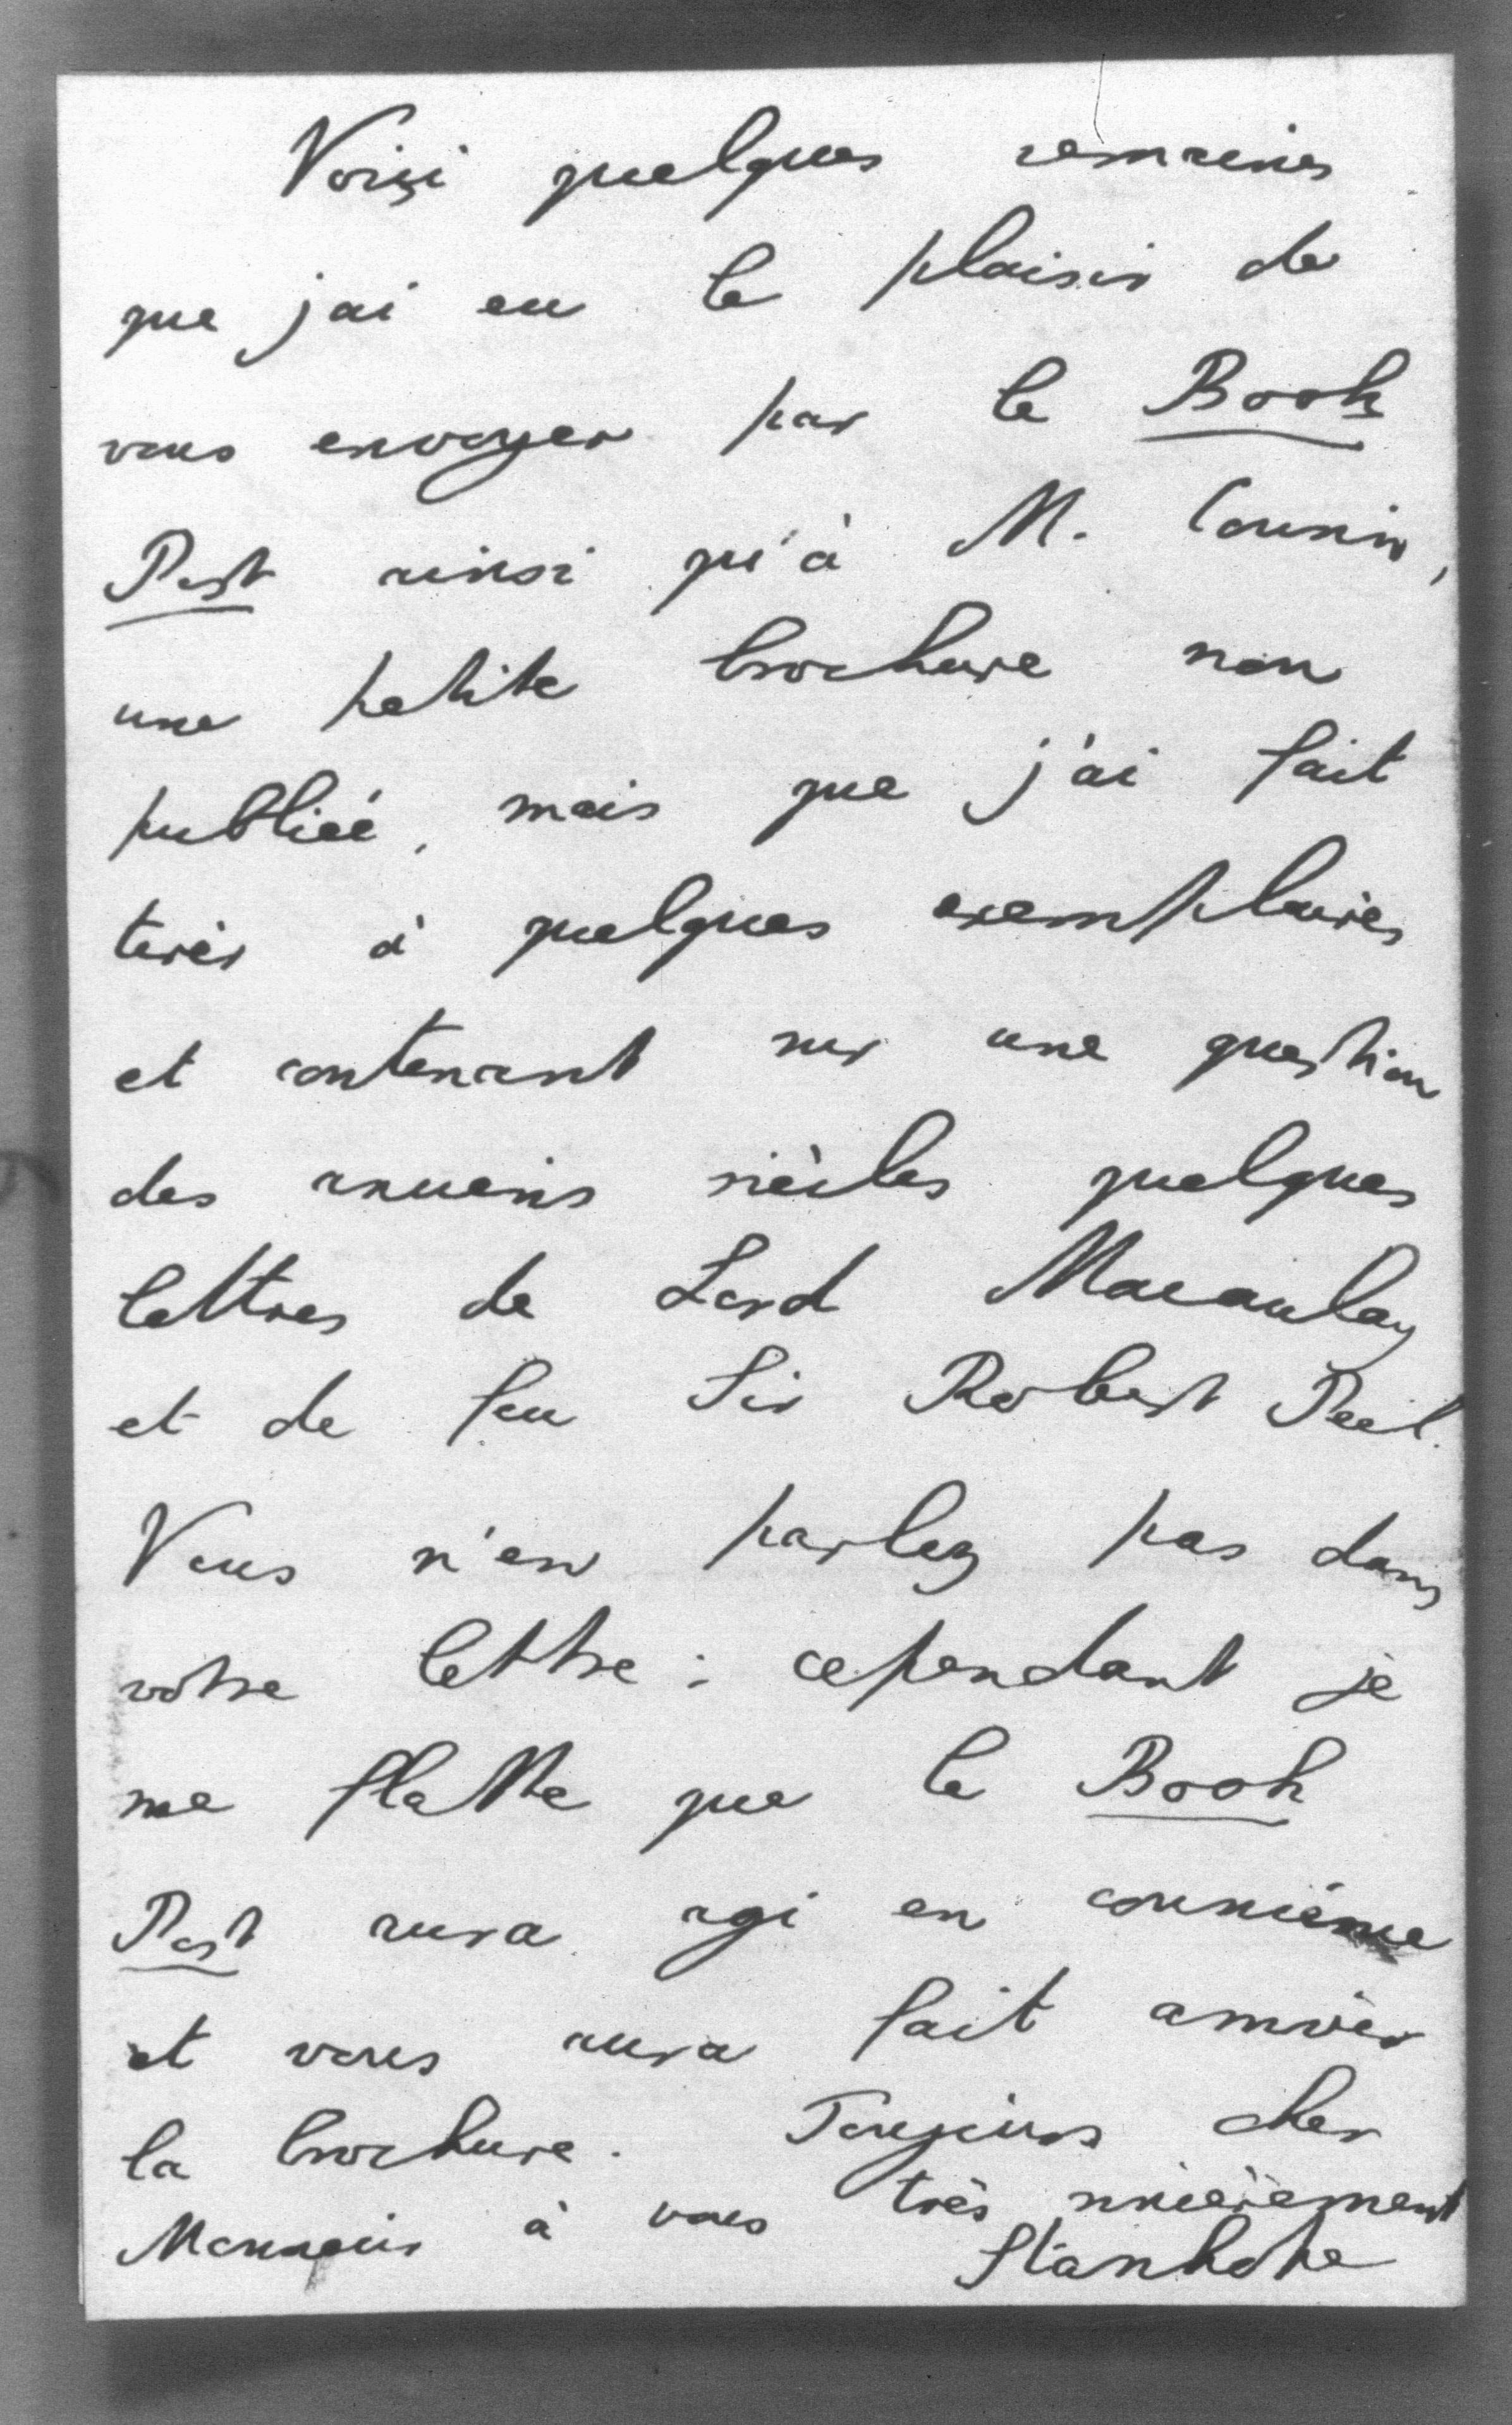 Voici quelques semaines
que j'ai eu le plaisir de
vous envoyer par le Book
Post ainsi qu'à M. Cousin,
une petite brochure non
publiée, mais que j'ai fait
tirer à quelques exemplaires
et contenant sur une question
des anciens siècles quelques
lettres de Lord Macaulay
et de feu Sir Robert Peel.
Vous n'en parlez pas dans
votre lettre : cependant je
me flatte que le Book
Post aura agi en conscience
et vous aura fait arriver
la brochure. Toujours cher
Monsieur à vous très sincèrement
Stanhope